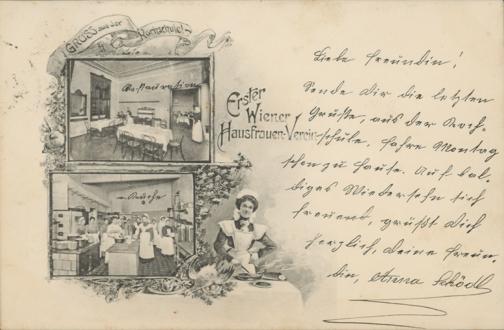 GRUSS aus der Kochschule!
Restauration
Küche
Erster
Wiener
Hausfrauen-Verein-
Liebe Freundin!
Sende dir die letzten
Grüße, aus der Koch-
schule, fahre Montag
schon zu Hause. Auf bal-
diges Wiedersehn sich
freuend, grüßt dich
herzlich, deine Freun-
din, Anna Schödl